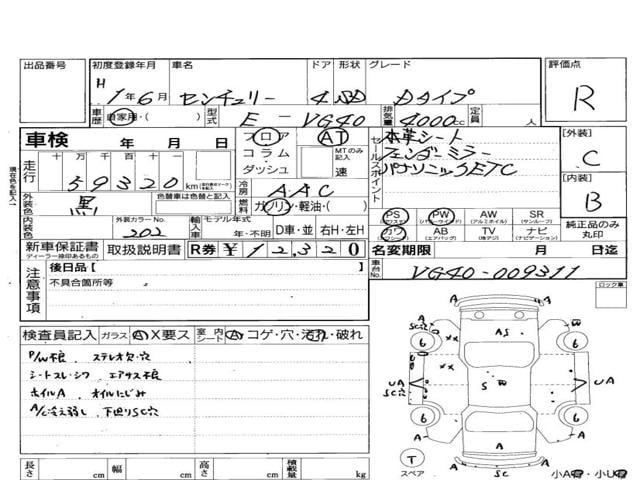 出品番号 初度登録年月 車名 ドア 形状 グレード 評価点
H 1年6月 センチュリー 4 SD Dタイプ R
車歴 自家用・( ) 型式 E-VG40 排気量 4000cc 定員 人
車検 年 月 日 フロア コラム・ダッシュ AT MTのみ記入 速
本革シート
フェンダーミラー
パナソニックETC
セールスポイント
[外装] C
[内装] B
走行 十万 万 千 百 十 一
59320 km
冷房 AAC
燃料 ガソリン・軽油・( )
外装色 黒 色替車は色替と記入
内装色 外装カラーNo. 202 輸入車 モデル年式 年・不明 D車・並 右H・左H
PS PW AW SR
(パワーウインド) (アルミホイル) (サンルーフ)
カワ AB TV ナビ
(エアバック) (地デジ) (ナビゲーション)
純正品のみ丸印
新車保証書 取扱説明書 R券 ¥12,320
ディーラー印あるもの
名変期限 月 日迄
車台No. VG40-009311
注意事項
後日品[ ]
不具合箇所等
ロック車
検査員記入 ガラス A X要ス 室内シート A コゲ・穴・汚れ・破れ
P/W不良 ステレオ欠・穴
シートスレ・シワ エアサス不良
ホイルA オイルにじみ
A/C冷え弱し 下廻りSC穴
A
A SC穴
AS
6
6
S
UA SC穴
UA
6
6
A
A
SC
T
スペア
長さ cm 幅 cm 高さ cm 積載量 kg
小A有・小U有
現在色を記入